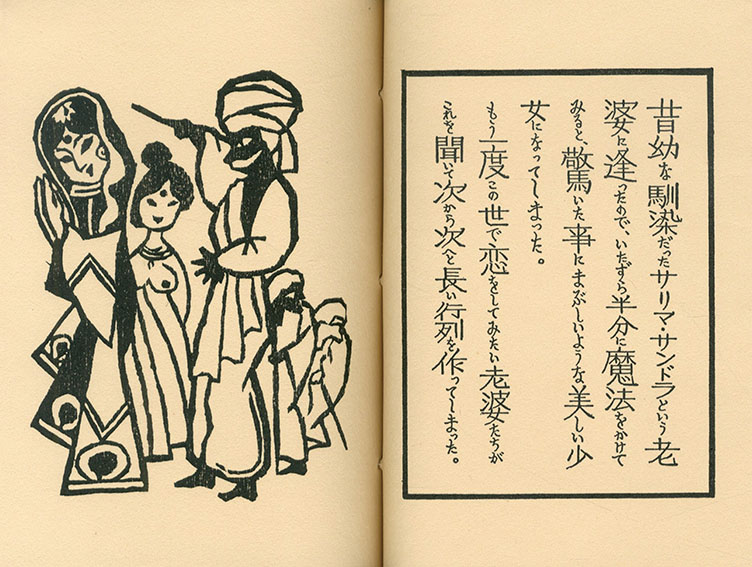 昔幼な馴染だったサリマ・サンドラという老
婆に逢ったので、いたずら半分に魔法をかけて
みると、驚いた事にまぶしいような美しい少
女になってしまった。
もう一度この世で恋をしてみたい老婆たちが
これを聞いて次から次へと長い行列を作ってしまった。